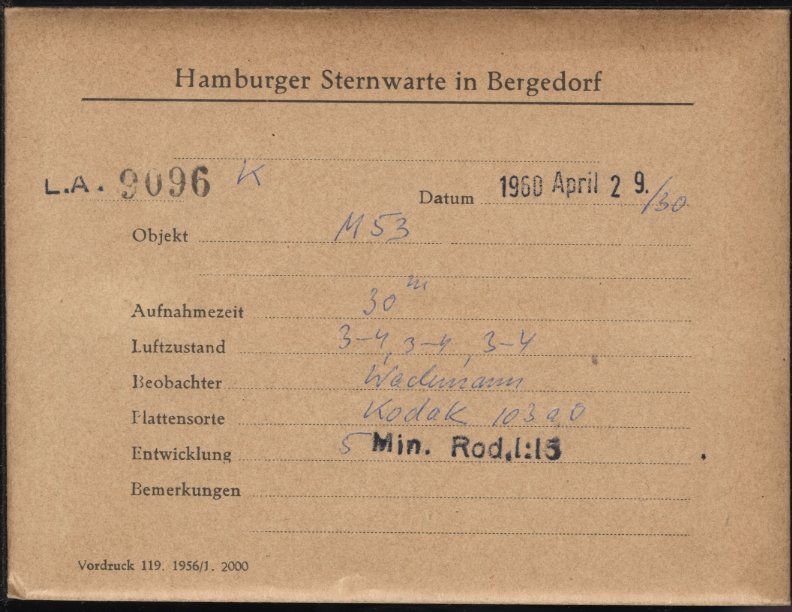 Hamburger Sternwarte in Bergedorf
L.A. 9096 K
Datum 1960 April 29./30
Objekt M53
Aufnahmezeit 30 m
Luftzustand 3-4, 3-4, 3-4
Beobachter Wachmann
Plattensorte Kodak 103a0
Entwicklung 5 Min. Rod.1:15
Bemerkungen
Vordruck 119. 1956/1. 2000